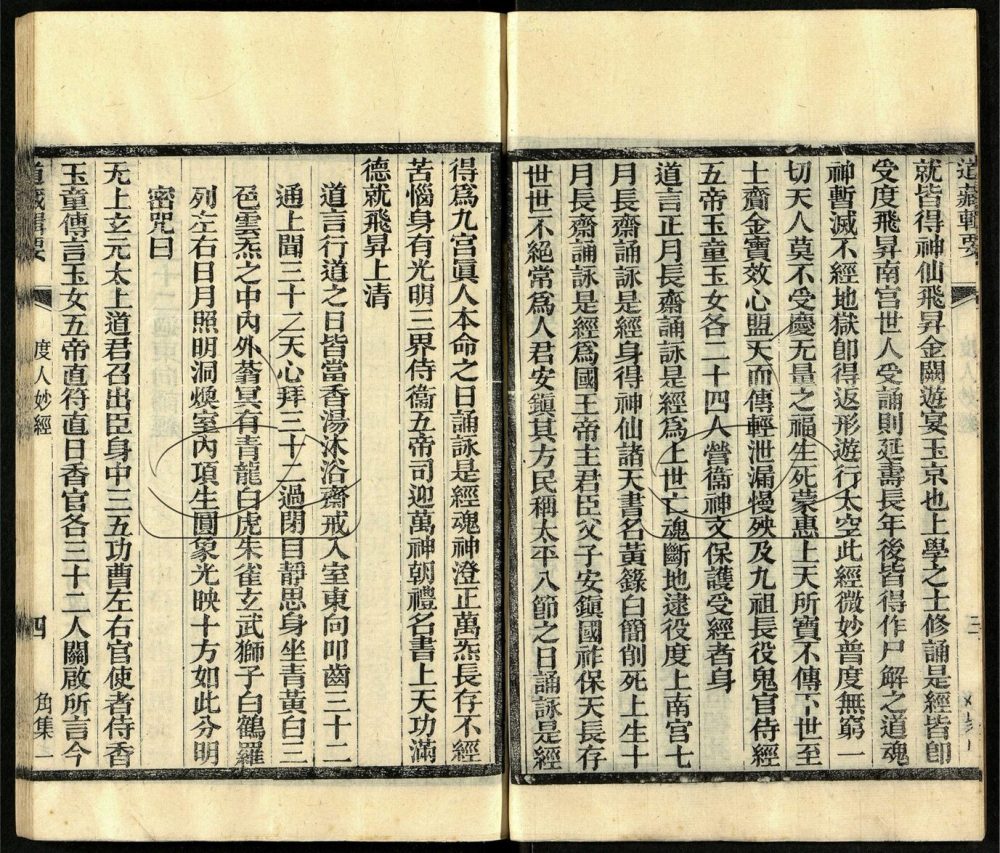 道藏輯要
三
就皆得神仙飛昇金闕遊宴玉京也上學之士修誦是經皆卽
受度飛昇南宮世人受誦則延壽長年後皆得作尸解之道魂
神暫滅不經地獄卽得返形遊行太空此經微妙普度無窮一
切天人莫不受慶无量之福生死蒙惠上天所寶不傳下世至
士齎金寶效心盟天而傳輕泄漏慢殃及九祖長役鬼官侍經
五帝玉童玉女各二十四人營衞神文保護受經者身
道言正月長齋誦詠是經爲上世亡魂斷地逮役度上南宮七
月長齋誦詠是經身得神仙諸天書名黃籙白簡削死上生十
月長齋誦詠是經爲國王帝主君臣父子安鎮國祚保天長存
世世不絕常爲人君安鎮其方民稱太平八節之日誦詠是經
得爲九宮眞人本命之日誦詠是經魂神澄正萬炁長存不經
苦惱身有光明三界侍衞五帝司迎萬神朝禮名書上天功滿
德就飛昇上清
道言行道之日皆當香湯沐浴齋戒入室東向叩齒三十二
通上聞三十二天心拜三十二過閉目靜思身坐青黃白三
色雲炁之中內外蓊冥有青龍白虎朱雀玄武獅子白鶴羅
列左右日月照明洞煥室內項生圓象光映十方如此分明
密咒曰
无上玄元太上道君召出臣身中三五功曹左右官使者侍香
玉童傳言玉女五帝直符直日香官各三十二人關啟所言今
道藏輯要
度人妙經
四
角集一